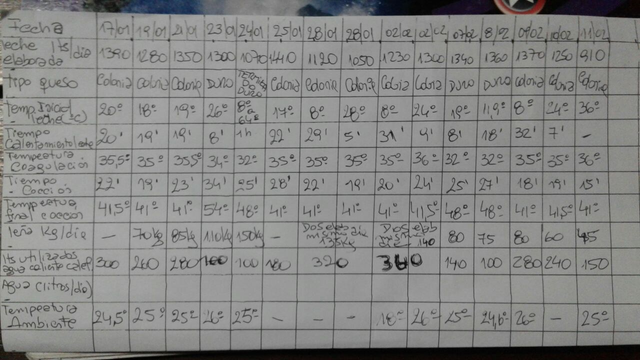 Fecha 17/01 19/01 21/01 23/01 24/01 25/01 28/01 28/01 02/02 02/02 07/02 8/02 09/02 10/02 11/02
leche lts/dia
elaborada 1390 1280 1350 1300 1070 1410 1120 1050 1230 1300 1340 1360 1370 1250 910
Tipo queso Colonia Colonia Colonia Duro Colonia Colonia Colonia Colonia Colonia Duro Duro Colonia Colonia Colonia
Temp Inicial
leche (ºc) 20º 18º 19º 26º 8º 17º 8º 28º 8º 24º 19º 11,9º 8º 24º 36º
Tiempo
Calentamiento leche 20' 19' 19' 8' 1h 22' 29' 5' 31' 4' 8' 18' 32' 7' -
Temperatura
Coagulacion 35,5º 35º 35,5º 34º 32º 35º 35º 35º 35º 36º 32º 32º 35º 35º 36º
Tiempo
Coccion 22' 19' 23' 34' 25' 28' 22' 19' 20' 24' 25' 27' 18' 19' 15'
Temperatura
final coccion 41,5º 41º 41º 54º 48º 41º 41º 41º 41º 41,5º 48º 48º 41º 41,5º 41º
leña Kg/dia - 70kg 85kg 110kg 150kg - Dos elab 135kg Dos elab 140 80 75 80 60 45
lts utilizados
agua caliente calef 300 260 280 160 100 180 320 360 140 100 280 240 150
Agua (litros/dia)
Temperatura
Ambiente 24,5º 25º 25º 26º 25º - - - 18º 26º 25º 24,6º 26º - 25º